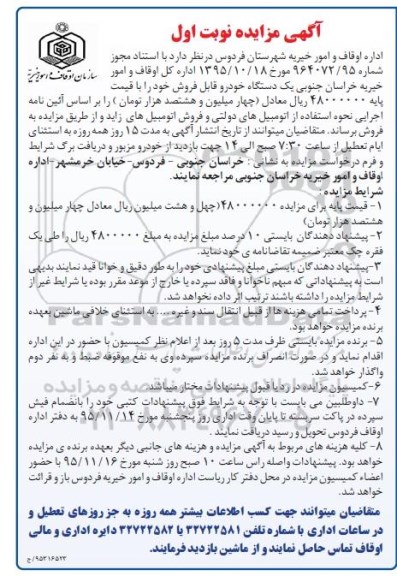 آگهی مزایده نوبت اول
سازمان اوقاف و امور خیریه
اداره اوقاف و امور خیریه شهرستان فردوس درنظر دارد با استناد مجوز
شماره ۹۶۴۰۷۲/۹۵ مورخ ۱۳۹۵/۱۰/۱۸ اداره کل اوقاف و امور
خیریه خراسان جنوبی یک دستگاه خودرو قابل فروش خود را با قیمت
پایه ۴۸۰۰۰۰۰۰ ریال معادل (چهار میلیون و هشتصد هزار تومان) را بر اساس آئین نامه
اجرایی نحوه استفاده از اتومبیل های دولتی و فروش اتومبیل های زاید و از طریق مزایده به
فروش برساند. متقاضیان میتوانند از تاریخ انتشار آگهی به مدت ۱۵ روز همه روزه به استثنای
ایام تعطیل از ساعت ۷:۳۰ صبح الی ۱۴ جهت بازدید از خودرو مزبور و دریافت برگ شرایط
و فرم درخواست مزایده به نشانی : خراسان جنوبی - فردوس-خیابان خرمشهر-اداره
اوقاف و امور خیریه خراسان جنوبی مراجعه نمایند.
شرایط مزایده :
۱- قیمت پایه برای مزایده ۴۸۰۰۰۰۰۰ (چهل و هشت میلیون ریال معادل چهار میلیون و
هشتصد هزار تومان)
۲- پیشنهاد دهندگان بایستی ۱۰ درصد مبلغ مزایده به مبلغ ۴۸۰۰۰۰۰ ریال را طی یک
فقره چک معتبر ضمیمه تقاضانامه ی خود نماید.
۳-پیشنهاد دهندگان بایستی مبلغ پیشنهادی خود را به طور دقیق و خوانا قید نمایند بدیهی
است به پیشنهاداتی که مبهم ناخوانا و فاقد سپرده یا خارج از موعد مقرر بوده یا شرایط غیر از
شرایط مزایده را داشته باشند ترتیب اثر داده نخواهد شد.
۴- پرداخت تمامی هزینه ها از قبیل انتقال سند و غیره .... به استثنای خلافی ماشین بعهده
برنده مزایده خواهد بود.
۵- برنده مزایده بایستی ظرف مدت ۵ روز بعد از اعلام نظر کمیسیون با حضور در این اداره
اقدام نماید و در صورت انصراف برنده مزایده سپرده وی به نفع موقوفه ضبط و به نفر دوم
واگذار خواهد شد.
۶-کمیسیون مزایده در رد یا قبول پیشنهادات مختار میباشد.
۷- داوطلبین می بایست با توجه به شرایط فوق پیشنهادات کتبی خود را بانضمام فیش
سپرده در پاکت سربسته تا پایان وقت اداری روز پنجشنبه مورخ ۹۵/۱۱/۱۴ به دفتر اداره
اوقاف فردوس تحویل و رسید دریافت نمایند .
۸- کلیه هزینه های مربوط به آگهی مزایده و هزینه های جانبی دیگر بعهده برنده ی مزایده
خواهد بود. پیشنهادات واصله راس ساعت ۱۰ صبح روز شنبه مورخ ۹۵/۱۱/۱۶ با حضور
اعضاء کمیسیون مزایده در محل دفتر کار ریاست اداره اوقاف و امور خیریه فردوس باز و قرائت
خواهد شد.
متقاضیان میتوانند جهت کسب اطلاعات بیشتر همه روزه به جز روزهای تعطیل و
در ساعات اداری با شماره تلفن ۳۲۷۲۲۵۸۱ یا ۳۲۷۲۲۵۸۲ دایره اداری و مالی
اوقاف تماس حاصل نمایند و از ماشین بازدید فرمایند.
۹۵۳۱۶۵۲۳/ج